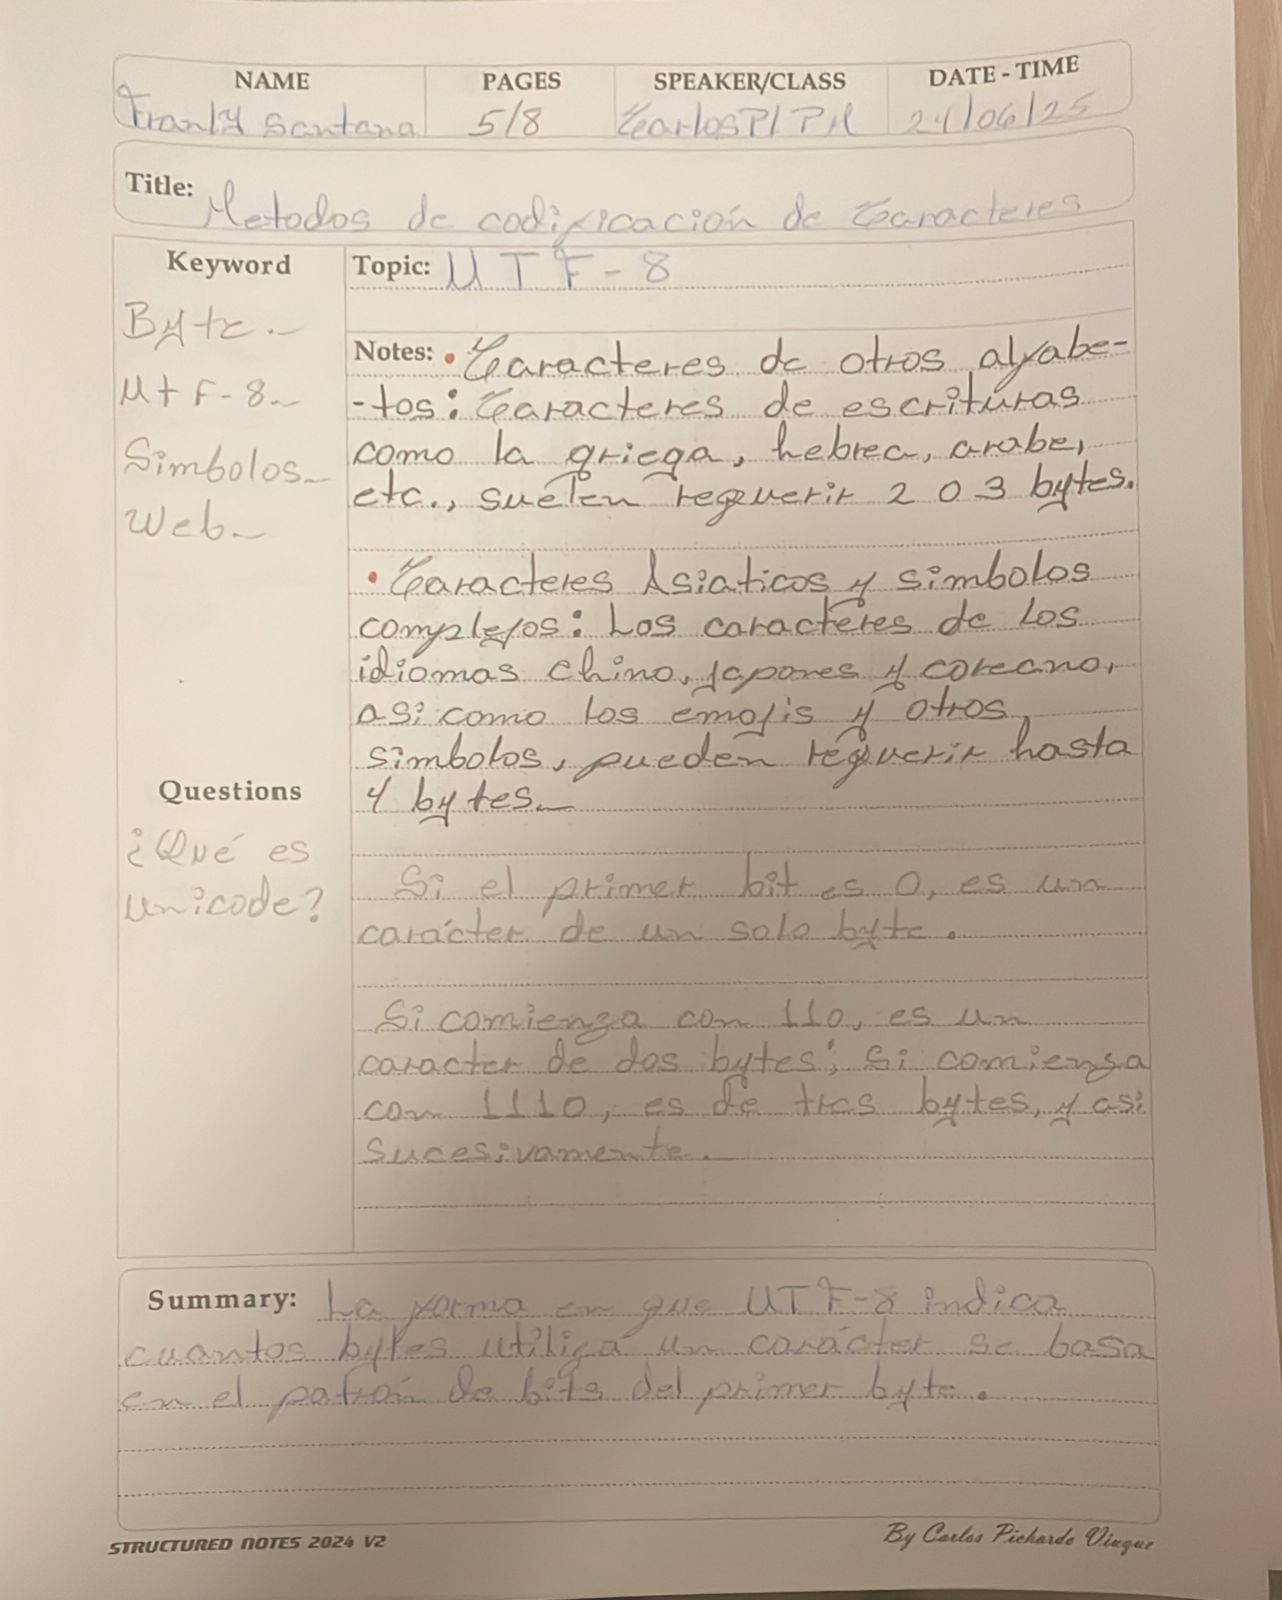 NAME PAGES SPEAKER/CLASS DATE - TIME
Franly Santana 5/8 CarlosP/PM 24/06/25
Title: Metodos de codificación de Caracteres
Keyword
Byte.
UTF-8
Simbolos
Web
Topic: UTF-8
Notes: • Caracteres de otros alfabe-
-tos: Caracteres de escrituras
como la griega, hebrea, arabe,
etc., suelen requerir 2 o 3 bytes.
• Caracteres Asiaticos y simbolos
complejos: Los caracteres de los
idiomas chino, japones y coreano,
asi como los emojis y otros
simbolos, pueden requerir hasta
4 bytes.
Si el primer bit es 0, es un
carácter de un solo byte.
Si comienza con 110, es un
caracter de dos bytes; si comienza
con 1110, es de tres bytes, y asi
sucesivamente.
Questions
¿Qué es
Unicode?
Summary: La forma en que UTF-8 indica
cuantos bytes utiliza un carácter se basa
en el patrón de bits del primer byte.
STRUCTURED NOTES 2024 V2
By Carlos Pichardo Viuque